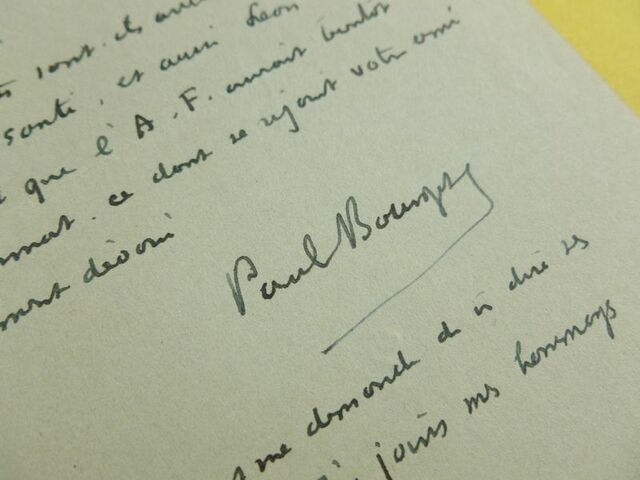 sont. ils
santé, et aussi Léon
que l'A.F. aurait bientôt
ce dont se réjouit votre ami
dévoué
Paul Bourget
me demande de vous dire ses
joins mes hommages